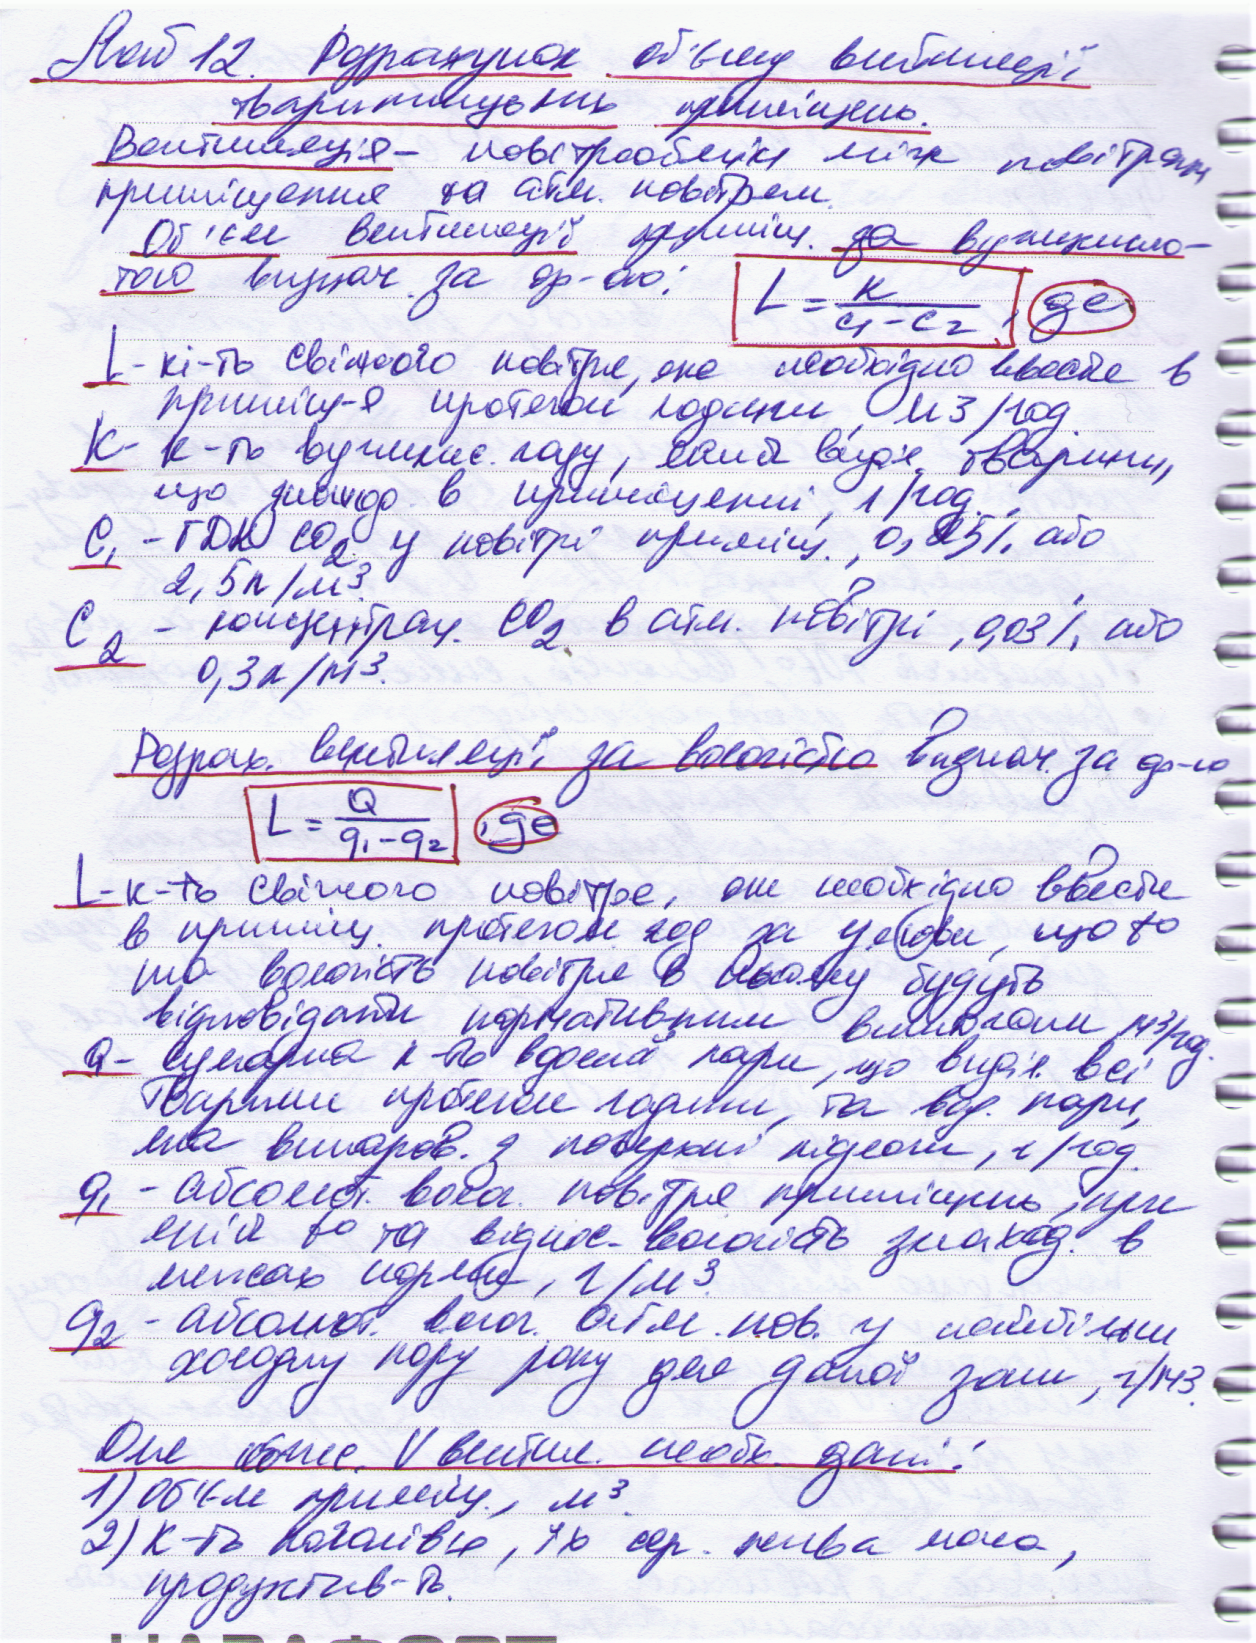 Лаб 12. Розрахунок об'єму вентиляції
тваринницьких приміщень.
Вентиляція – повітрообмін між повітрям
приміщення та атм. повітрям.
Об'єм вентиляції приміщ. за вуглекисло-
тою визнач. за ф-лою: L = K / (C1 – C2), де
L – кі-ть свіжого повітря, яке необхідно ввести в
приміщ-я протягом години, м3/год.
K – к-ть вуглекис. газу, який виділ. тварини,
що знаход. в приміщенні, л/год.
C1 – ГДК CO2 у повітрі приміщ., 0,25%, або
2,5л/м3.
C2 – концентрац. CO2 в атм. повітрі, 0,03%, або
0,3л/м3.
Розрах. вентиляції за вологістю визнач. за ф-ю
L = Q / (q1 – q2), де
L – к-ть свіжого повітря, яке необхідно ввести
в приміщ. протягом год за умови, що t°
та вологість повітря в ньому будуть
відповідати нормативним вимогам, м3/год.
Q – сумарна к-ть водяної пари, що виділ. всі
тварини протягом години, та вод. пари,
яка випаров. з поверхні підлоги, г/год.
q1 – абсолют. волог. повітря приміщень, при
якій t° та віднос. вологість знаход. в
межах норми, г/м3.
q2 – абсолют. волог. атм. пов. у найбільш
холодну пору року для даної зони, г/м3.
Для обчис. V вентил. необх. дані:
1) Об'єм приміщ., м3
2) К-ть поголівю, їх сер. жива маса,
продуктив-ть.